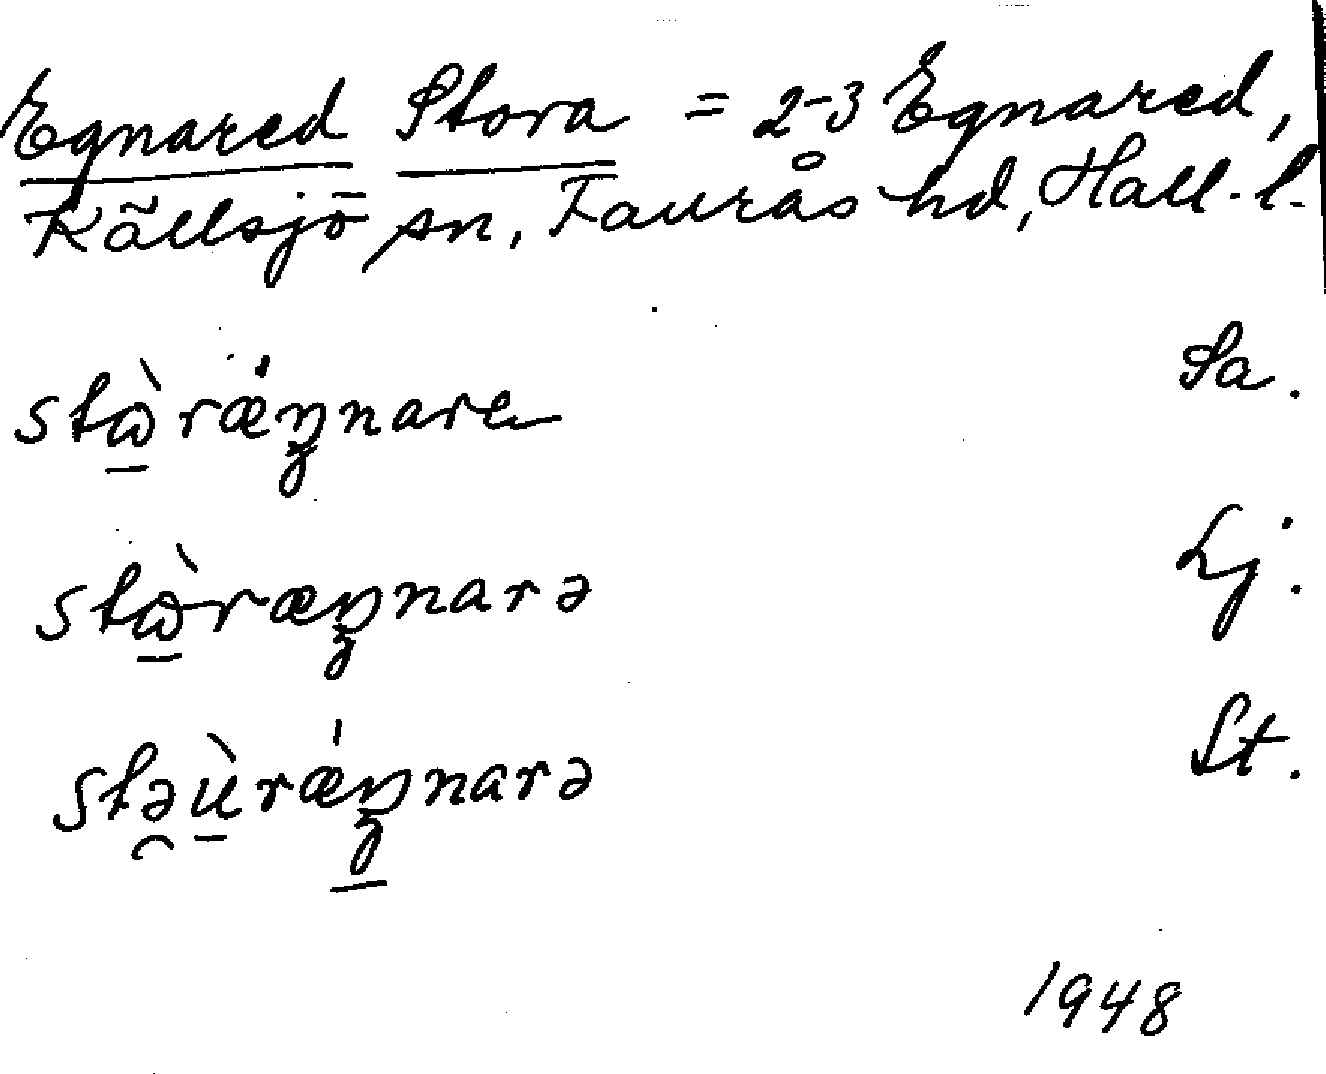 Egnared Stora = 2-3 Egnared,
Källsjö sn, Faurås hd, Hall. l.
stɷ̠̀rǽŋnare Sa.
stɷ̠̀ræŋnarə Lj.
stə̯ù̠rǽŋ̠narə St.
1948